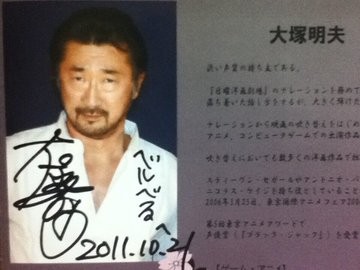 大塚明夫
渋い声質の持ち主である。
『日曜洋画劇場』のナレーション
落ち着いた語り
ナレーションから映画の吹き替えをはじめ
アニメ、コンピュータゲームでの出演作
吹き替えにおいても数多くの洋画作品で
スティーヴン・セガールやアントニオ・バ
ニコラス・ケイジを持ち役としていること
2006年3月25日、東京国際アニメフェア200
第5回東京アニメアワードで
声優賞（『ブラック・ジャック』）を受賞
べルべるへ
2011.10.21